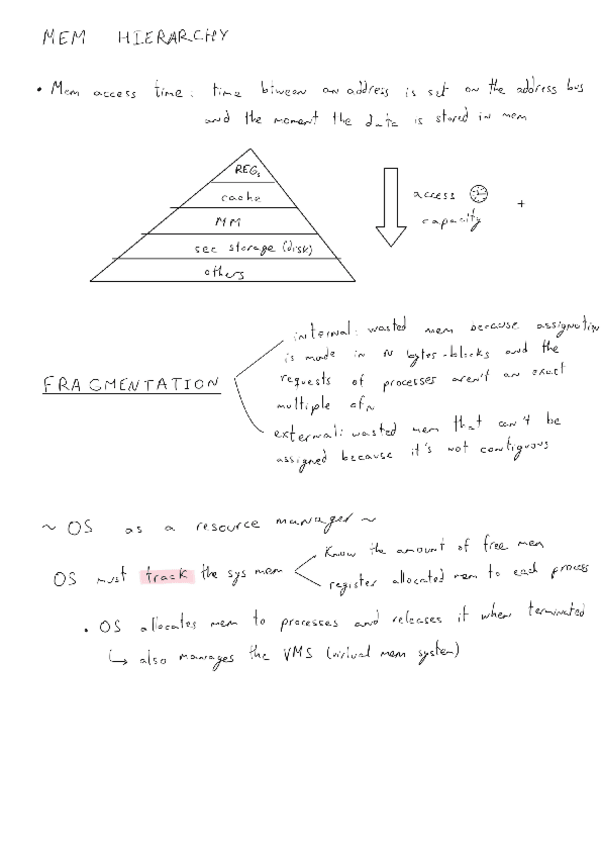 MEM HIERARCHY
• Mem access time: time btween an address is set on the address bus
and the moment the data is stored in mem
REGs
cache
MM
sec storage (disk)
others
access
capacity
+
FRAGMENTATION
internal: wasted mem because assignation
is made in N bytes-blocks and the
requests of processes aren't an exact
multiple of N
external: wasted mem that can't be
assigned because it's not contiguous
~ OS as a resource manager ~
OS must track the sys mem
Know the amount of free mem
register allocated mem to each process
• OS allocates mem to processes and releases it when terminated
↳ also manages the VMS (virtual mem system)